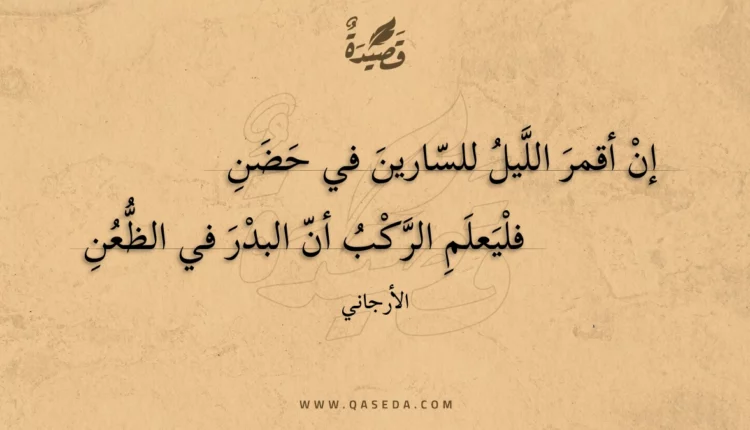 قَصِيْدَةٌ
إنْ أقمرَ اللَّيلُ للسّارينَ في حَضَنِ
فلْيَعلَمِ الرَّكْبُ أنّ البدْرَ في الظُّعُنِ
الأرجاني
WWW.QASEDA.COM